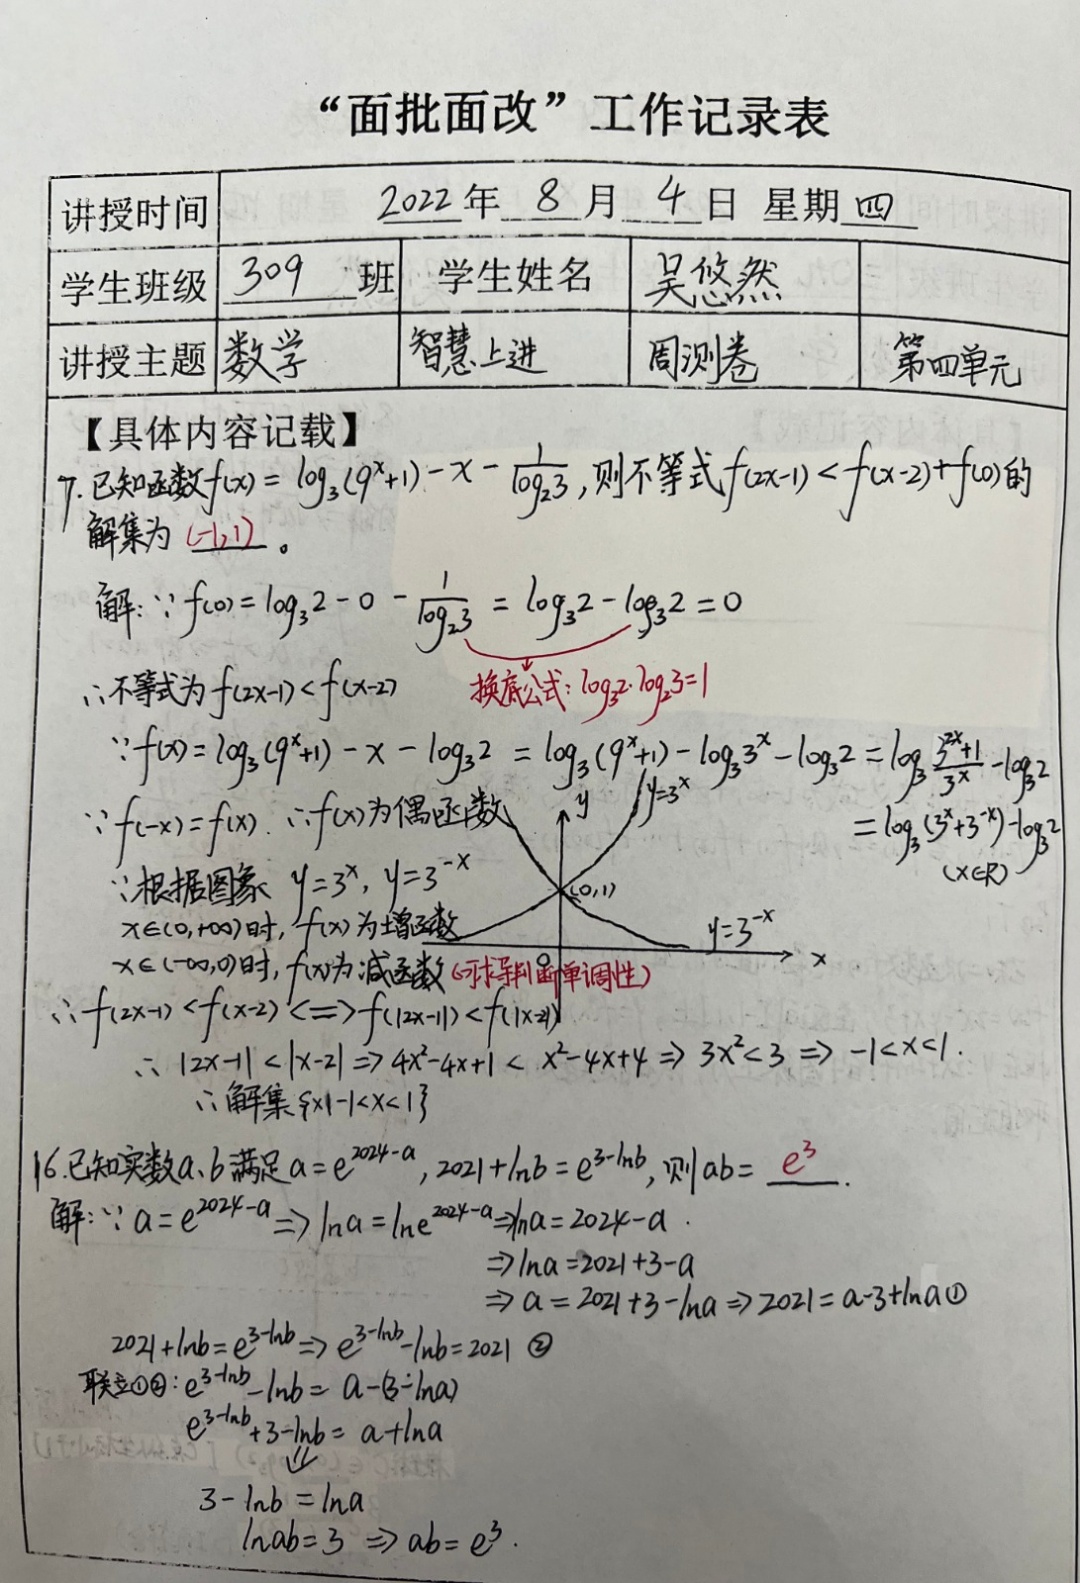 “面批面改”工作记录表
讲授时间 2022年 8月 4日 星期四
学生班级 309 班 学生姓名 吴悠然
讲授主题 数学 智慧上进 周测卷 第四单元
【具体内容记载】
7.已知函数f(x)=log₃(9ˣ+1)-x-1/log₂3,则不等式f(2x-1)<f(x-2)+f(0)的
解集为 (-1,1) 。
解:∵f(0)=log₃2-0-1/log₂3=log₃2-log₃2=0
∴不等式为f(2x-1)<f(x-2) 换底公式:log₃2·log₂3=1
∵f(x)=log₃(9ˣ+1)-x-log₃2=log₃(9ˣ+1)-log₃3ˣ-log₃2=log₃(3²ˣ+1)/3ˣ-log₃2
=log₃(3ˣ+3⁻ˣ)-log₃2
(x∈R)
∵f(-x)=f(x).∴f(x)为偶函数
y y=3ˣ
∵根据图象 y=3ˣ, y=3⁻ˣ
(0,1)
x∈(0,+∞)时,f(x)为增函数
y=3⁻ˣ
x∈(-∞,0)时,f(x)为减函数(可求导判断单调性)
O x
∴f(2x-1)<f(x-2)<=>f(|2x-1|)<f(|x-2|)
∴|2x-1|<|x-2|⇒4x²-4x+1<x²-4x+4⇒3x²<3⇒-1<x<1.
∴解集{x|-1<x<1}
16.已知实数a、b满足a=e²⁰²⁴⁻ᵃ,2021+lnb=e^(3-lnb),则ab= e³ .
解:∵a=e²⁰²⁴⁻ᵃ⇒lna=lne²⁰²⁴⁻ᵃ⇒lna=2024-a.
⇒lna=2021+3-a
⇒a=2021+3-lna⇒2021=a-3+lna①
2021+lnb=e^(3-lnb)⇒e^(3-lnb)-lnb=2021 ②
联立①②:e^(3-lnb)-lnb=a-(3-lna)
e^(3-lnb)+3-lnb=a+lna
⇓
3-lnb=lna
lnab=3⇒ab=e³.